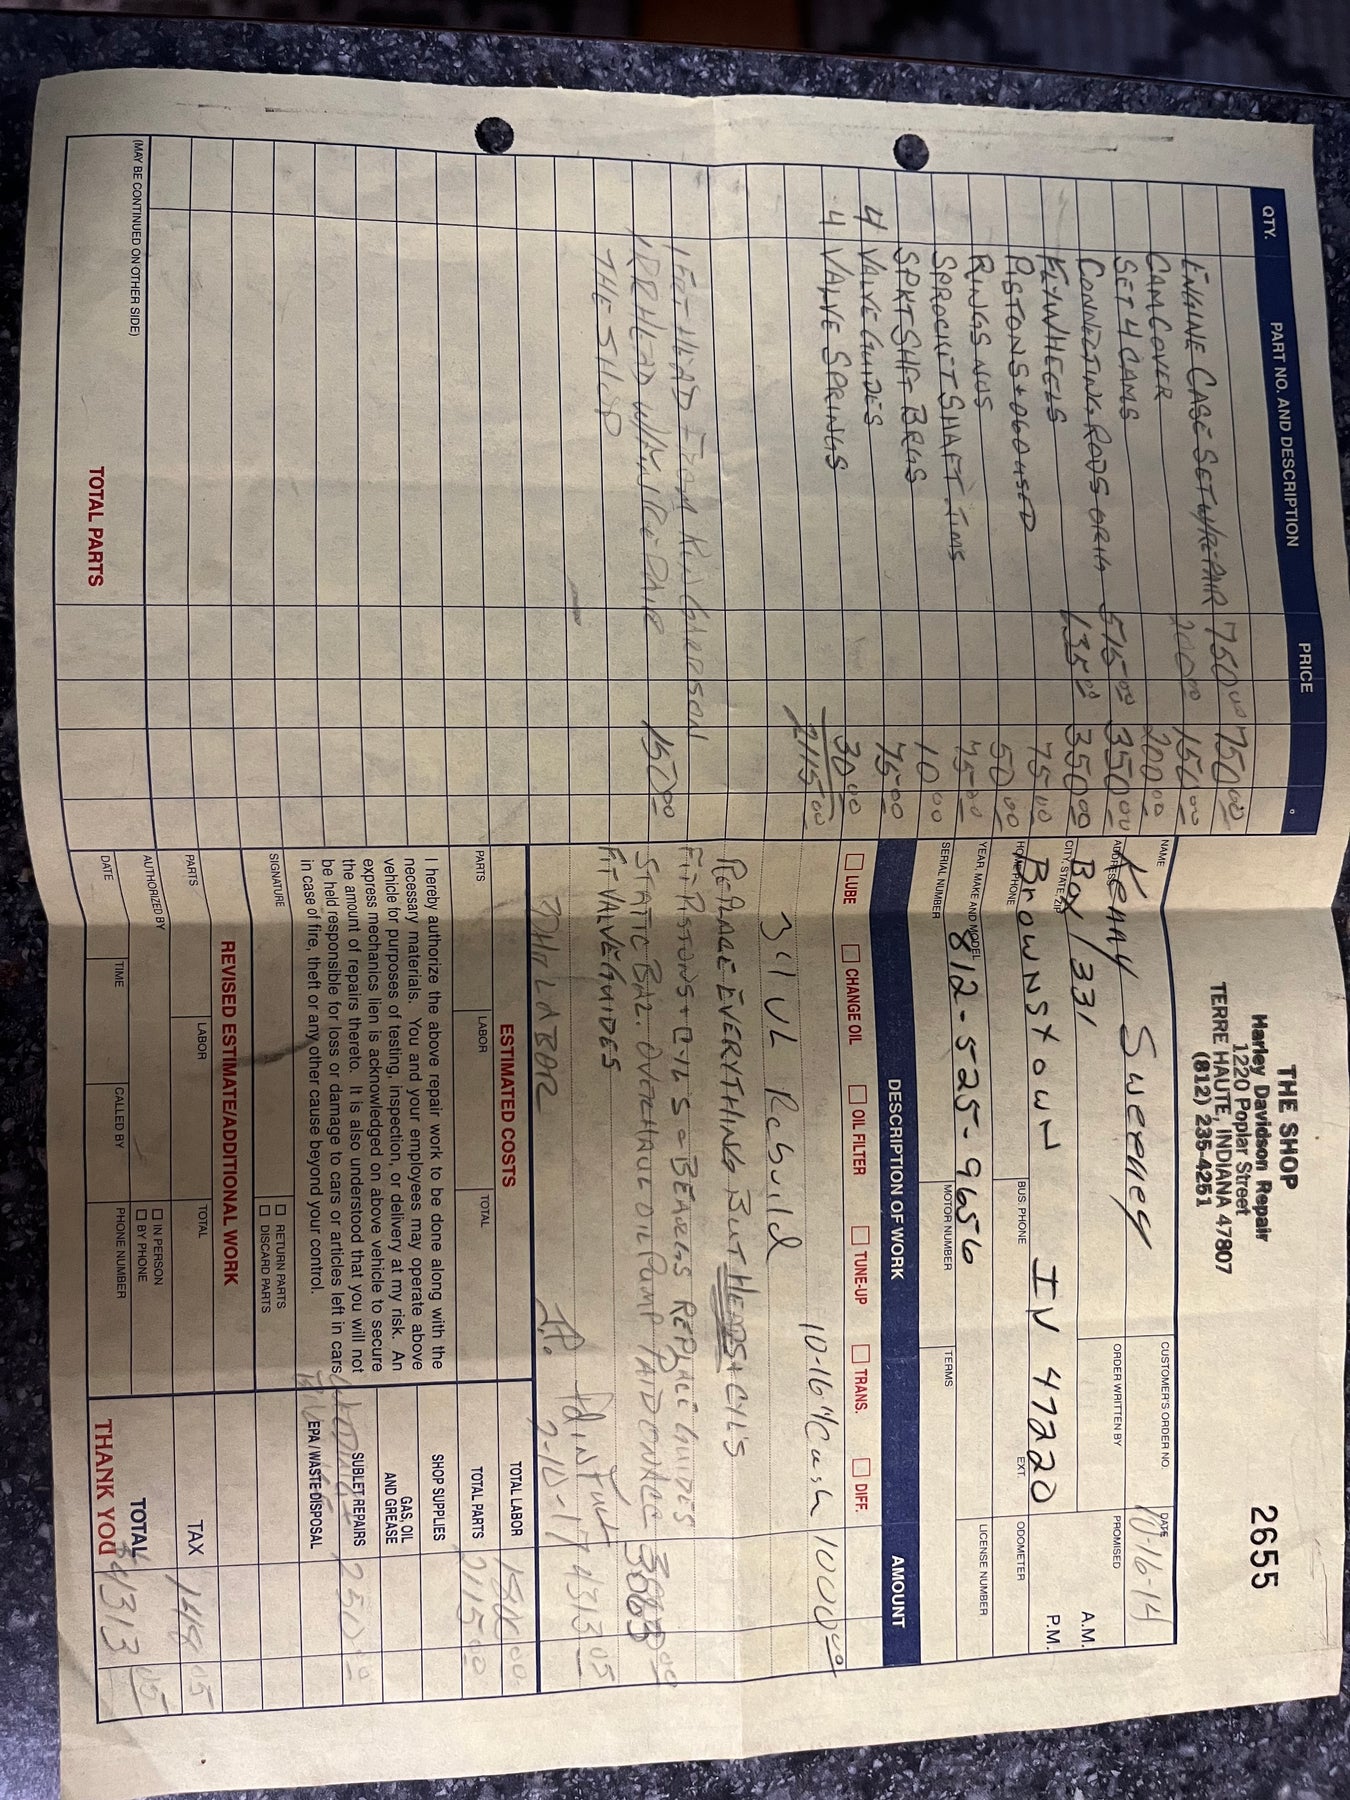 THE SHOP
Harley Davidson Repair
1220 Poplar Street
TERRE HAUTE, INDIANA 47807
(812) 235-4251
2655
QTY. PART NO. AND DESCRIPTION PRICE
ENGINE CASE SET W/REPAIR 750.00 750.00
CAM COVER 200.00 150.00
SET 4 CAMS 200.00
CONNECTING RODS ORIG 515.00 350.00
FLYWHEELS 135.00 350.00
PISTONS +.060 USED 75.00
RINGS NOS 50.00
SPROCKET SHAFT TIMS 75.00
SPKT SHFT BRGS 10.00
4 VALVE GUIDES 75.00
4 VALVE SPRINGS 30.00
2115.00
1 SET HEAD FROM KEN GARRISON
1 RR HEAD W/ REPAIR 150.00
THE SHOP
(MAY BE CONTINUED ON OTHER SIDE)
TOTAL PARTS
NAME Kenny Sweeney
CUSTOMER'S ORDER NO.
DATE 10-16-14
ADDRESS Box 1331
ORDER WRITTEN BY
PROMISED A.M. P.M.
CITY, STATE, ZIP Brownstown IN 47220
HOME PHONE
BUS PHONE EXT.
ODOMETER
812-525-9656
YEAR MAKE AND MODEL
LICENSE NUMBER
SERIAL NUMBER MOTOR NUMBER TERMS
DESCRIPTION OF WORK AMOUNT
LUBE CHANGE OIL OIL FILTER TUNE-UP TRANS. DIFF.
10-16-14 Cash 1000.00
34 UL Rebuild
REPLACE EVERYTHING BUT HEADS & CYL'S
FIT PISTONS + CYL'S - BEARINGS REPLACE GUIDES
STATIC BAL. OVERHAUL OIL PUMP PAID BALANCE
FIT VALVE GUIDES
Pd in Full 4313.05
2-10-17
ESTIMATED COSTS
PARTS LABOR TOTAL
I hereby authorize the above repair work to be done along with the
necessary materials. You and your employees may operate above
vehicle for purposes of testing, inspection, or delivery at my risk. An
express mechanics lien is acknowledged on above vehicle to secure
the amount of repairs thereto. It is also understood that you will not
be held responsible for loss or damage to cars or articles left in cars
in case of fire, theft or any other cause beyond your control.
SIGNATURE
RETURN PARTS
DISCARD PARTS
REVISED ESTIMATE/ADDITIONAL WORK
PARTS LABOR TOTAL
AUTHORIZED BY
IN PERSON
BY PHONE
DATE TIME CALLED BY PHONE NUMBER
TOTAL LABOR 1800.00
TOTAL PARTS 2115.00
SHOP SUPPLIES
GAS, OIL
AND GREASE
SUBLET REPAIRS 250.00
EPA / WASTE DISPOSAL
TAX 148.05
TOTAL 4313.05
THANK YOU